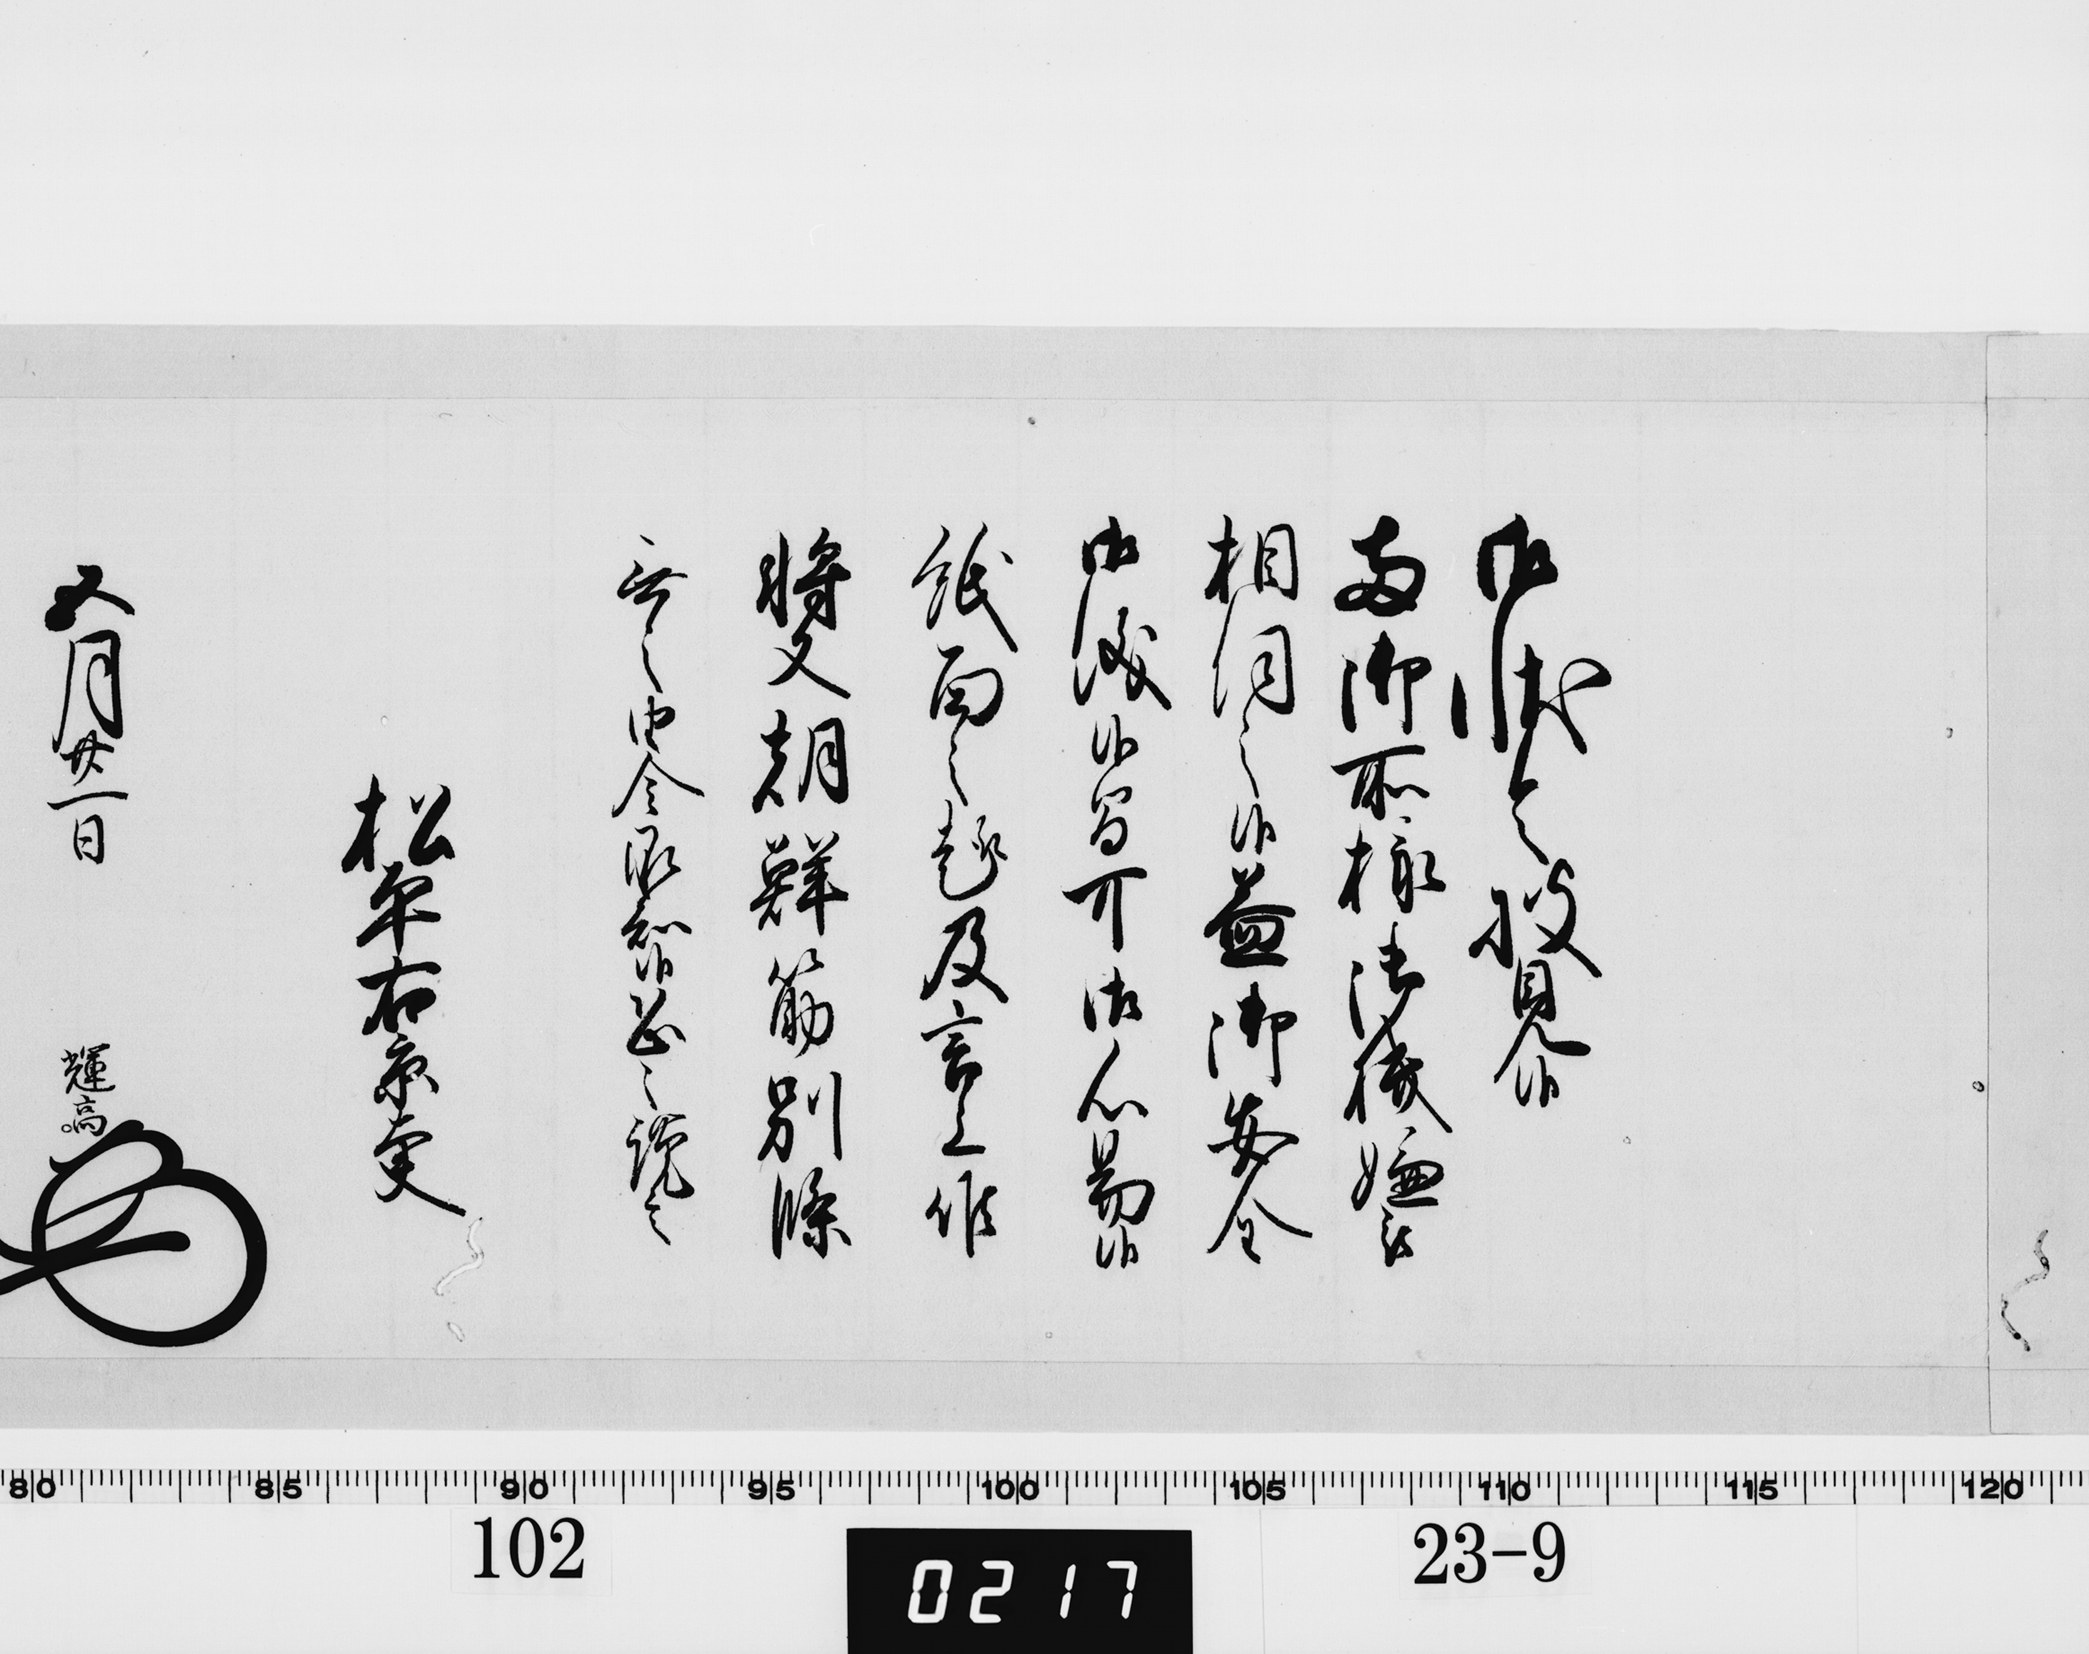 御状令披見候
両御所様御機嫌被
相伺之候益御安全
御儀候間可御心易候
紙面之趣及言上候
将又朝鮮筋別條
無之由令承知候恐々謹言
松平右京大夫
五月廿一日
輝高
80 85 90 95 100 105 110 115 120
102
0217
23-9